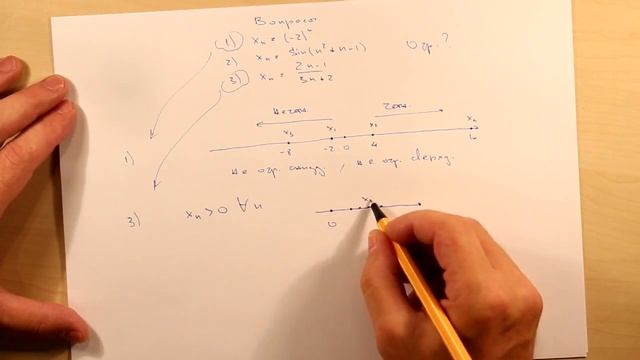 Вопросы
1) xₙ = (-2)ⁿ
2) xₙ = sin(n² + n - 1) Огр.?
3) xₙ = (2n-1)/(3n+2)
нечетн. четн.
x₃ x₁ x₂ xₙ
1) -8 -2 0 4 16
не огр. снизу, не огр. сверху.
3) xₙ > 0 ∀ n xₙ
0